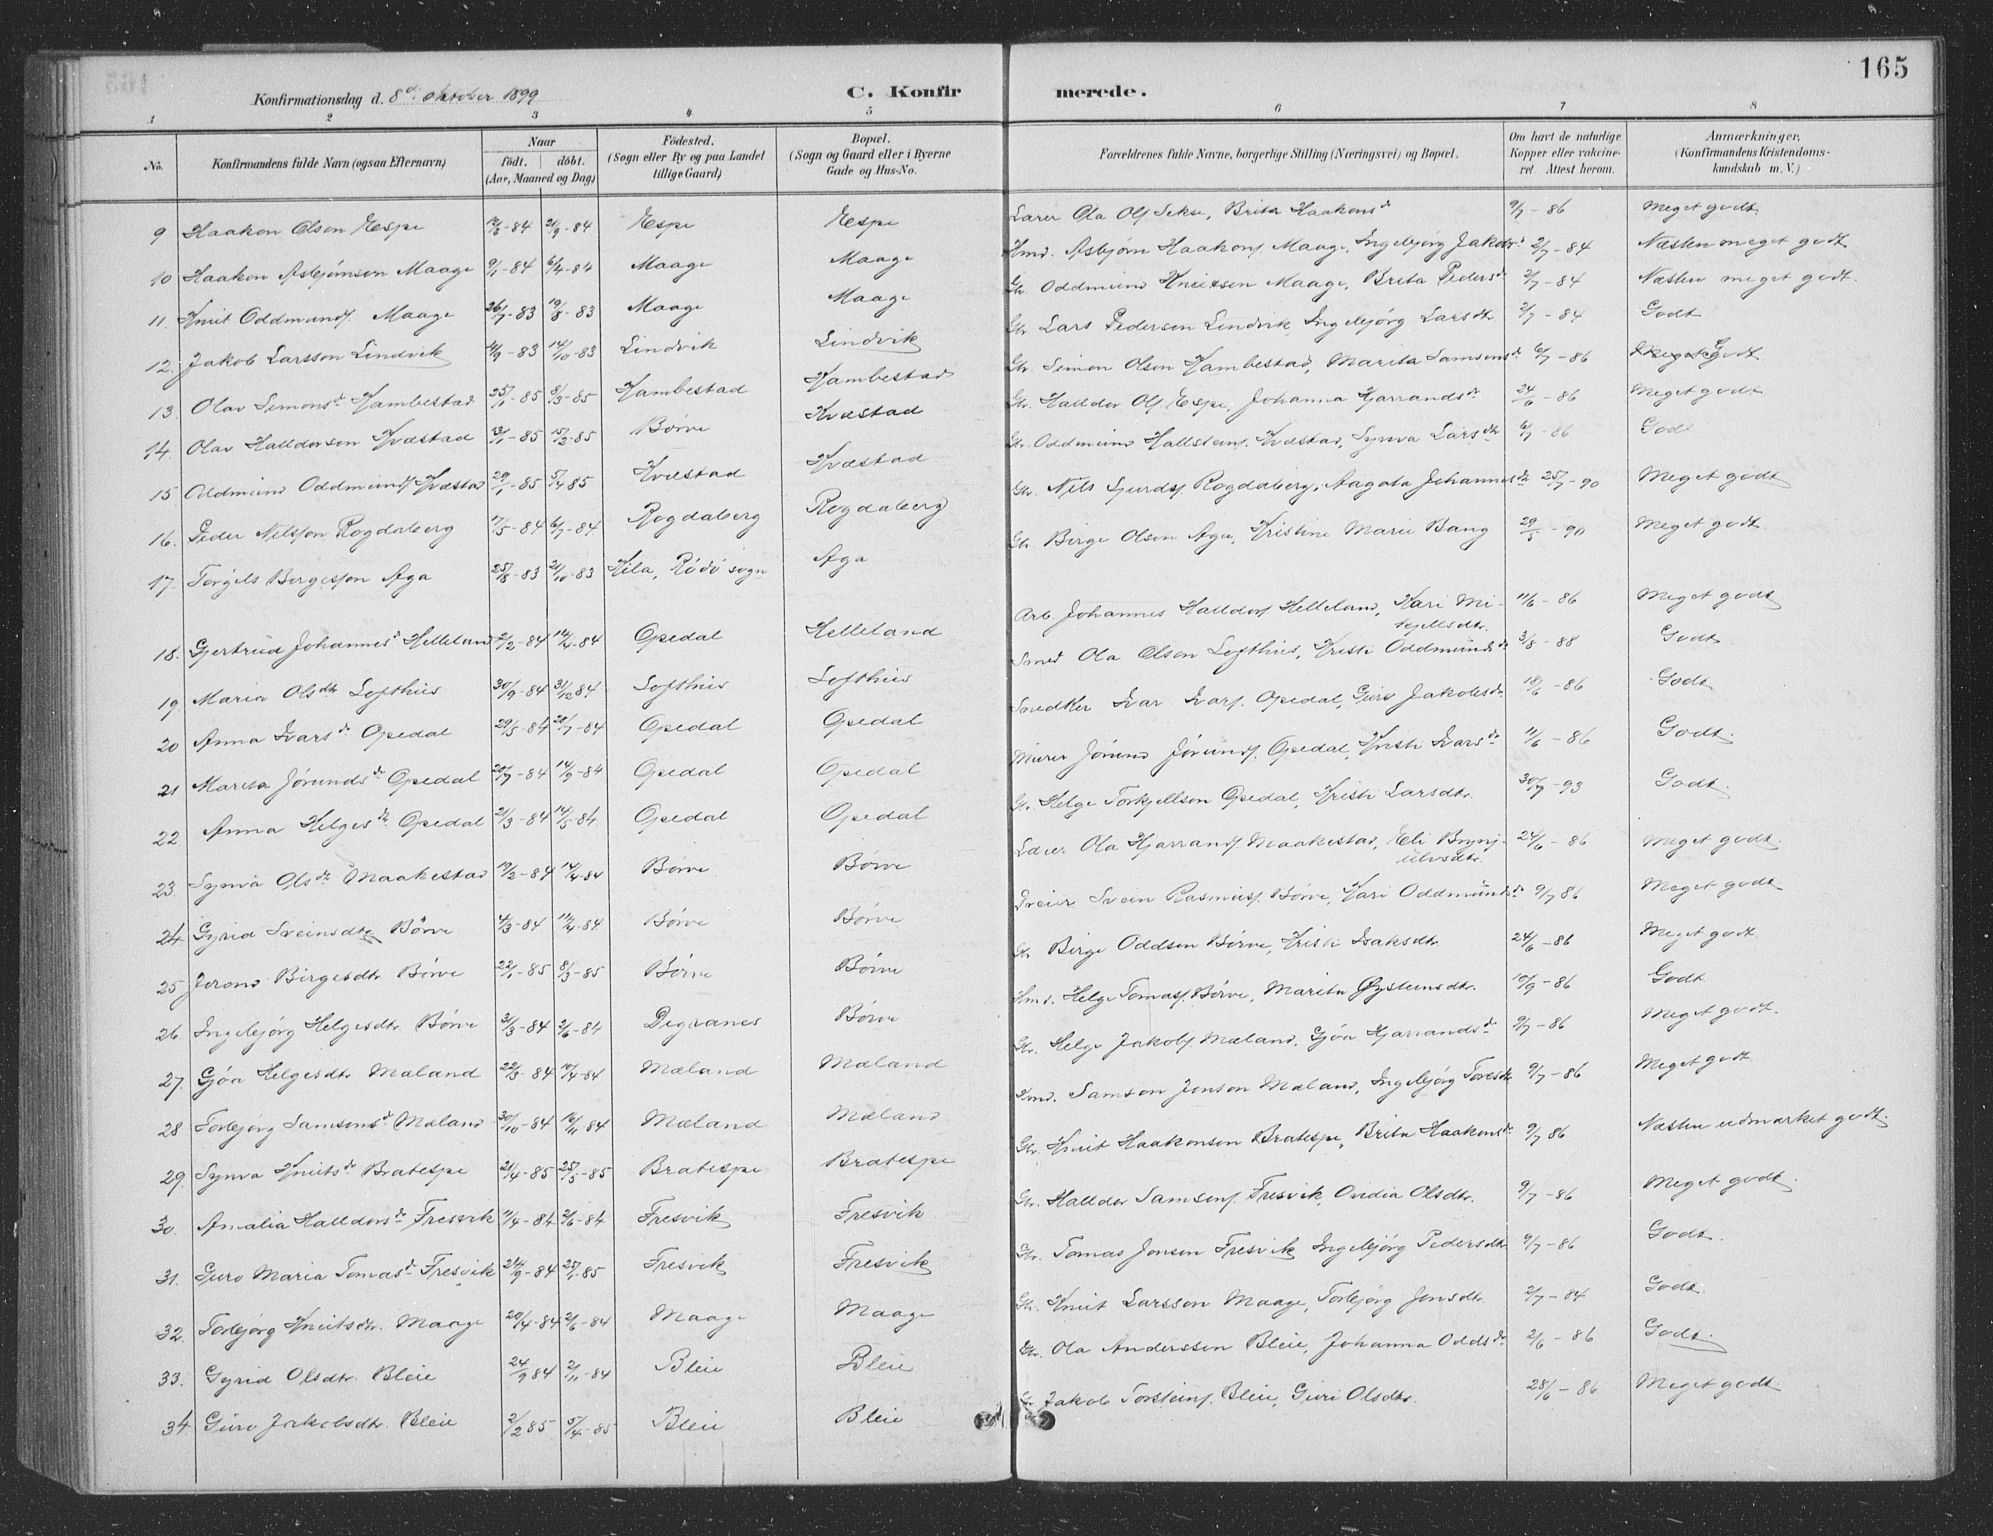 165
Konfirmationsdag d. 8de oktober 1899 C. Konfirmerede.
1 2 3 4 5 6 7 8
No. Konfirmandens fulde Navn (ogsaa Efternavn) Naar født. døbt. (Aar, Maaned og Dag) Fødested. (Sogn eller By og paa Landet tillige Gaard) Bopæl. (Sogn og Gaard eller i Byerne Gade og Hus-No. Forældrenes fulde Navne, borgerlige Stilling (Næringsvei) og Bopæl. Om havt de naturlige Kopper eller vakcineret. Attest herom. Anmærkninger. (Konfirmandens Kristendomskundskab m. V.)
9 Haakon Olson Espe 12/6-84 21/9-84 Espe Espe Lærer Ola Ols. Sekse, Brita Haakonsd. 9/7-86 Meget godt
10 Haakon Asbjørnson Maage 9/1-84 6/4-84 Maage Maage Hmd. Asbjørn Haakons. Maage, Ingebjørg Jakobsd. 2/7-84 Næsten meget godt
11. Knut Oddmunds. Maage 26/7-83 19/8-83 Maage Maage Gbr. Oddmund Knutson Maage, Brita Pedersd. 2/7-84 Næsten meget godt.
12. Jakob Larsson Lindvik 4/9-83 14/10-83 Lindvik Lindvik Gbr. Lars Pederson Lindvik, Ingebjørg Larsdtr. 2/7-84 Godt
13 Olav Simons. Hambestad 25/1-85 8/3-85 Hambestad Hambestad Gbr. Simon Olson Hambestad, Marita Samsonsd. 6/7-86 Godt
14. Olav Halldorson Kvæstad 13/1-85 15/2-85 Børve Kvæstad Gbr. Halldor Ols. Espe, Johanna Hjarrandsd. 24/6-86 Meget godt
15 Oddmund Oddmunds. Kvæstad 29/1-85 5/4-85 Kvæstad Kvæstad Gbr. Oddmund Hallsteins. Kvæstad, Synva Larsdtr. 6/7-86 Godt
16. Peder Nilsson Rogdaberg 17/5-84 6/7-84 Rogdaberg Rogdaberg Gbr. Nils Sjurds. Rogdaberg, Aagata Johannesdtr. 25/7-90 Meget godt
17. Torgils Bergesson Aga 25/8-83 21/10-83 Kila, Rödö sogn Aga Gbr. Birge Olson Aga, Kristine Marie Bang 29/5-90 Meget godt
18. Gjertrud Johannesd. Helleland 2/2-84 14/4-84 Opedal Helleland Arb. Johannes Halldors. Helleland, Kari Mikjellsdtr. 11/6-86 Meget godt
19. Maria Olsdtr Lofthus 30/9-84 31/12-84 Lofthus Lofthus Smed Ola Olson Lofthus, Kristi Oddmundsd. 3/8-88 Godt
20 Anna Ivarsd. Opedal 29/5-84 20/7-84 Opedal Opedal Snedker Ivar Ivars. Opedal, Guro Jakobsd. 18/6-86 Godt
21 Marita Jørundsd. Opedal 20/7-84 14/9-84 Opedal Opedal Murer Jørund Jørunds. Opedal, Kristi Ivarsd. 11/6-86 Godt.
22 Anna Helgesd. Opedal 21/3-84 14/5-84 Opedal Opedal Gbr. Helge Torkjellson Opedal, Kristi Larsdtr. 30/7-93 Godt.
23. Synva Olsd. Maakestad 19/2-84 14/4-84 Børve Børve Lærer Ola Hjarrands. Maakestad, Eli Brynjulvsdtr. 24/6-86 Meget godt.
24. Gyrid Sveinsdtr. Børve 4/3-84 11/4-84 Børve Børve Dreier Svein Rasmus. Børve, Kari Oddmundsd. 9/7 86 Meget godt
25 Jorond Birgesdtr. Børve 22/1-85 8/3-85 Børve Børve Gbr. Birge Oddson Børve, Kristi Isaksdtr. 24/6-86 Meget godt
26. Ingebjørg Helgesdtr. Børve 31/3-84 2/6-84 Digranes Børve Hmd. Helge Tomas. Børve, Marita Øysteinsdtr. 10/9-86 Godt.
27. Gjøa Helgesdtr. Mæland 22/3-84 10/4-84 Mæland Mæland Gbr. Helge Jakobs. Mæland, Gjøa Hjarrandsd. 9/7-86 Meget godt.
28 Torbjørg Samsonsd. Mæland 30/10-84 16/11-84 Mæland Mæland Hmd. Samson Jonson Mæland, Ingebjørg Toresdtr 9/7-86 Meget godt
29. Synva Knutsd. Bratespe 21/4-85 25/5-85 Bratespe Bratespe Gbr. Knut Haakonson Bratespe, Brita Haakonsd. 9/7 86 Næsten udmærket godt.
30. Amalia Halldorsd. Fresvik 11/4-84 2/6-84 Fresvik Fresvik Gbr. Halldor Samsons. Fresvik, Ovidia Olsdtr. 9/7-86 Meget godt.
31. Guro Maria Tomasd. Fresvik 24/9-84 25/1-85 Fresvik Fresvik Gbr. Tomas Jonson Fresvik, Ingebjørg Pedersdtr. 9/7-86 Godt.
32. Torbjørg Knutsdtr. Maage 20/4-84 2/6-84 Maage Maage Gbr. Knut Larsson Maage, Torbjørg Jonsdtr. 2/7-84 Godt.
33. Gyrid Olsdtr. Bleie 24/9 84 2/11-84 Bleie Bleie Gbr. Ola Andersson Bleie, Johanna Oddsd. 2/6-86 Godt.
34 Guro Jakobsdtr. Bleie 2/2 85 5/4-85 Bleie Bleie Gbr. Jakob Torsteins. Bleie, Guri Olsdtr. 28/6-86 Meget godt.